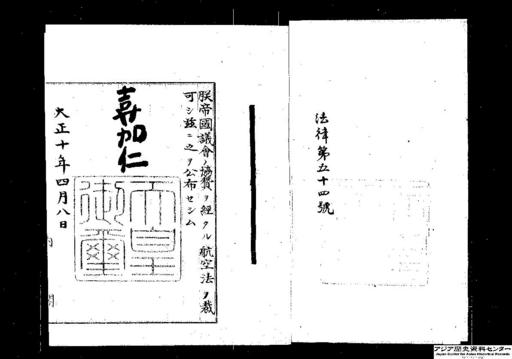 朕帝國議會ノ協贊ヲ經タル航空法ヲ裁
可シ茲ニ之ヲ公布セシム
嘉仁
天皇御璽
大正十年四月八日
法律第五十四號
アジア歴史資料センター
Japan Center for Asian Historical Records